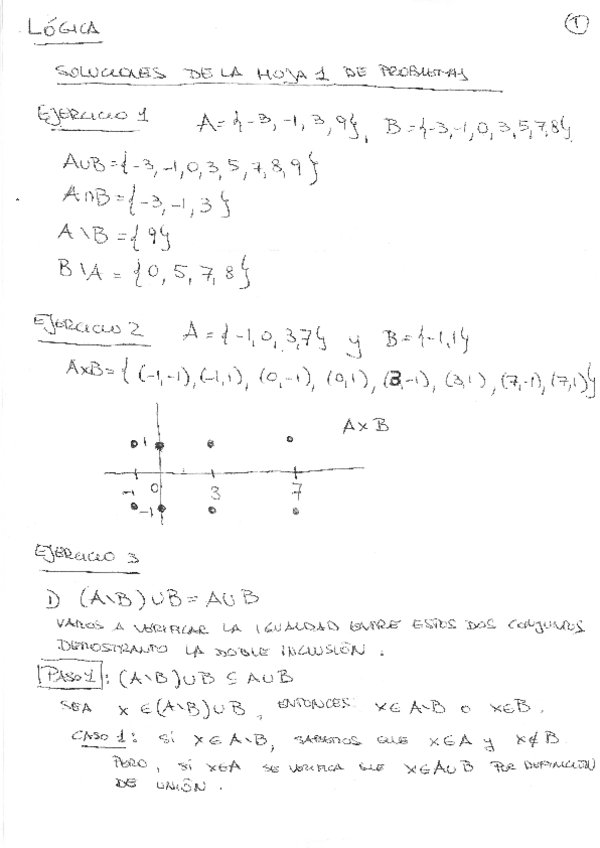 LÓGICA
1
SOLUCIONES DE LA HOJA 1 DE PROBLEMAS
EJERCICIO 1 A={-3,-1,3,9}, B={-3,-1,0,3,5,7,8}
A∪B={-3,-1,0,3,5,7,8,9}
A∩B={-3,-1,3}
A\B={9}
B\A={0,5,7,8}
EJERCICIO 2 A={-1,0,3,7} y B={-1,1}
A×B={(-1,-1),(-1,1),(0,-1),(0,1),(3,-1),(3,1),(7,-1),(7,1)}
A×B
1
-1 0 3 7
-1
EJERCICIO 3
1) (A\B)∪B=A∪B
VAMOS A VERIFICAR LA IGUALDAD ENTRE ESTOS DOS CONJUNTOS
DEMOSTRANDO LA DOBLE INCLUSIÓN.
PASO 1: (A\B)∪B⊆A∪B
SEA x∈(A\B)∪B, ENTONCES x∈A\B o x∈B.
CASO 1: SI x∈A\B, SABEMOS QUE x∈A y x∉B
PERO, SI x∈A SE VERIFICA QUE x∈A∪B POR DEFINICIÓN
DE UNIÓN.